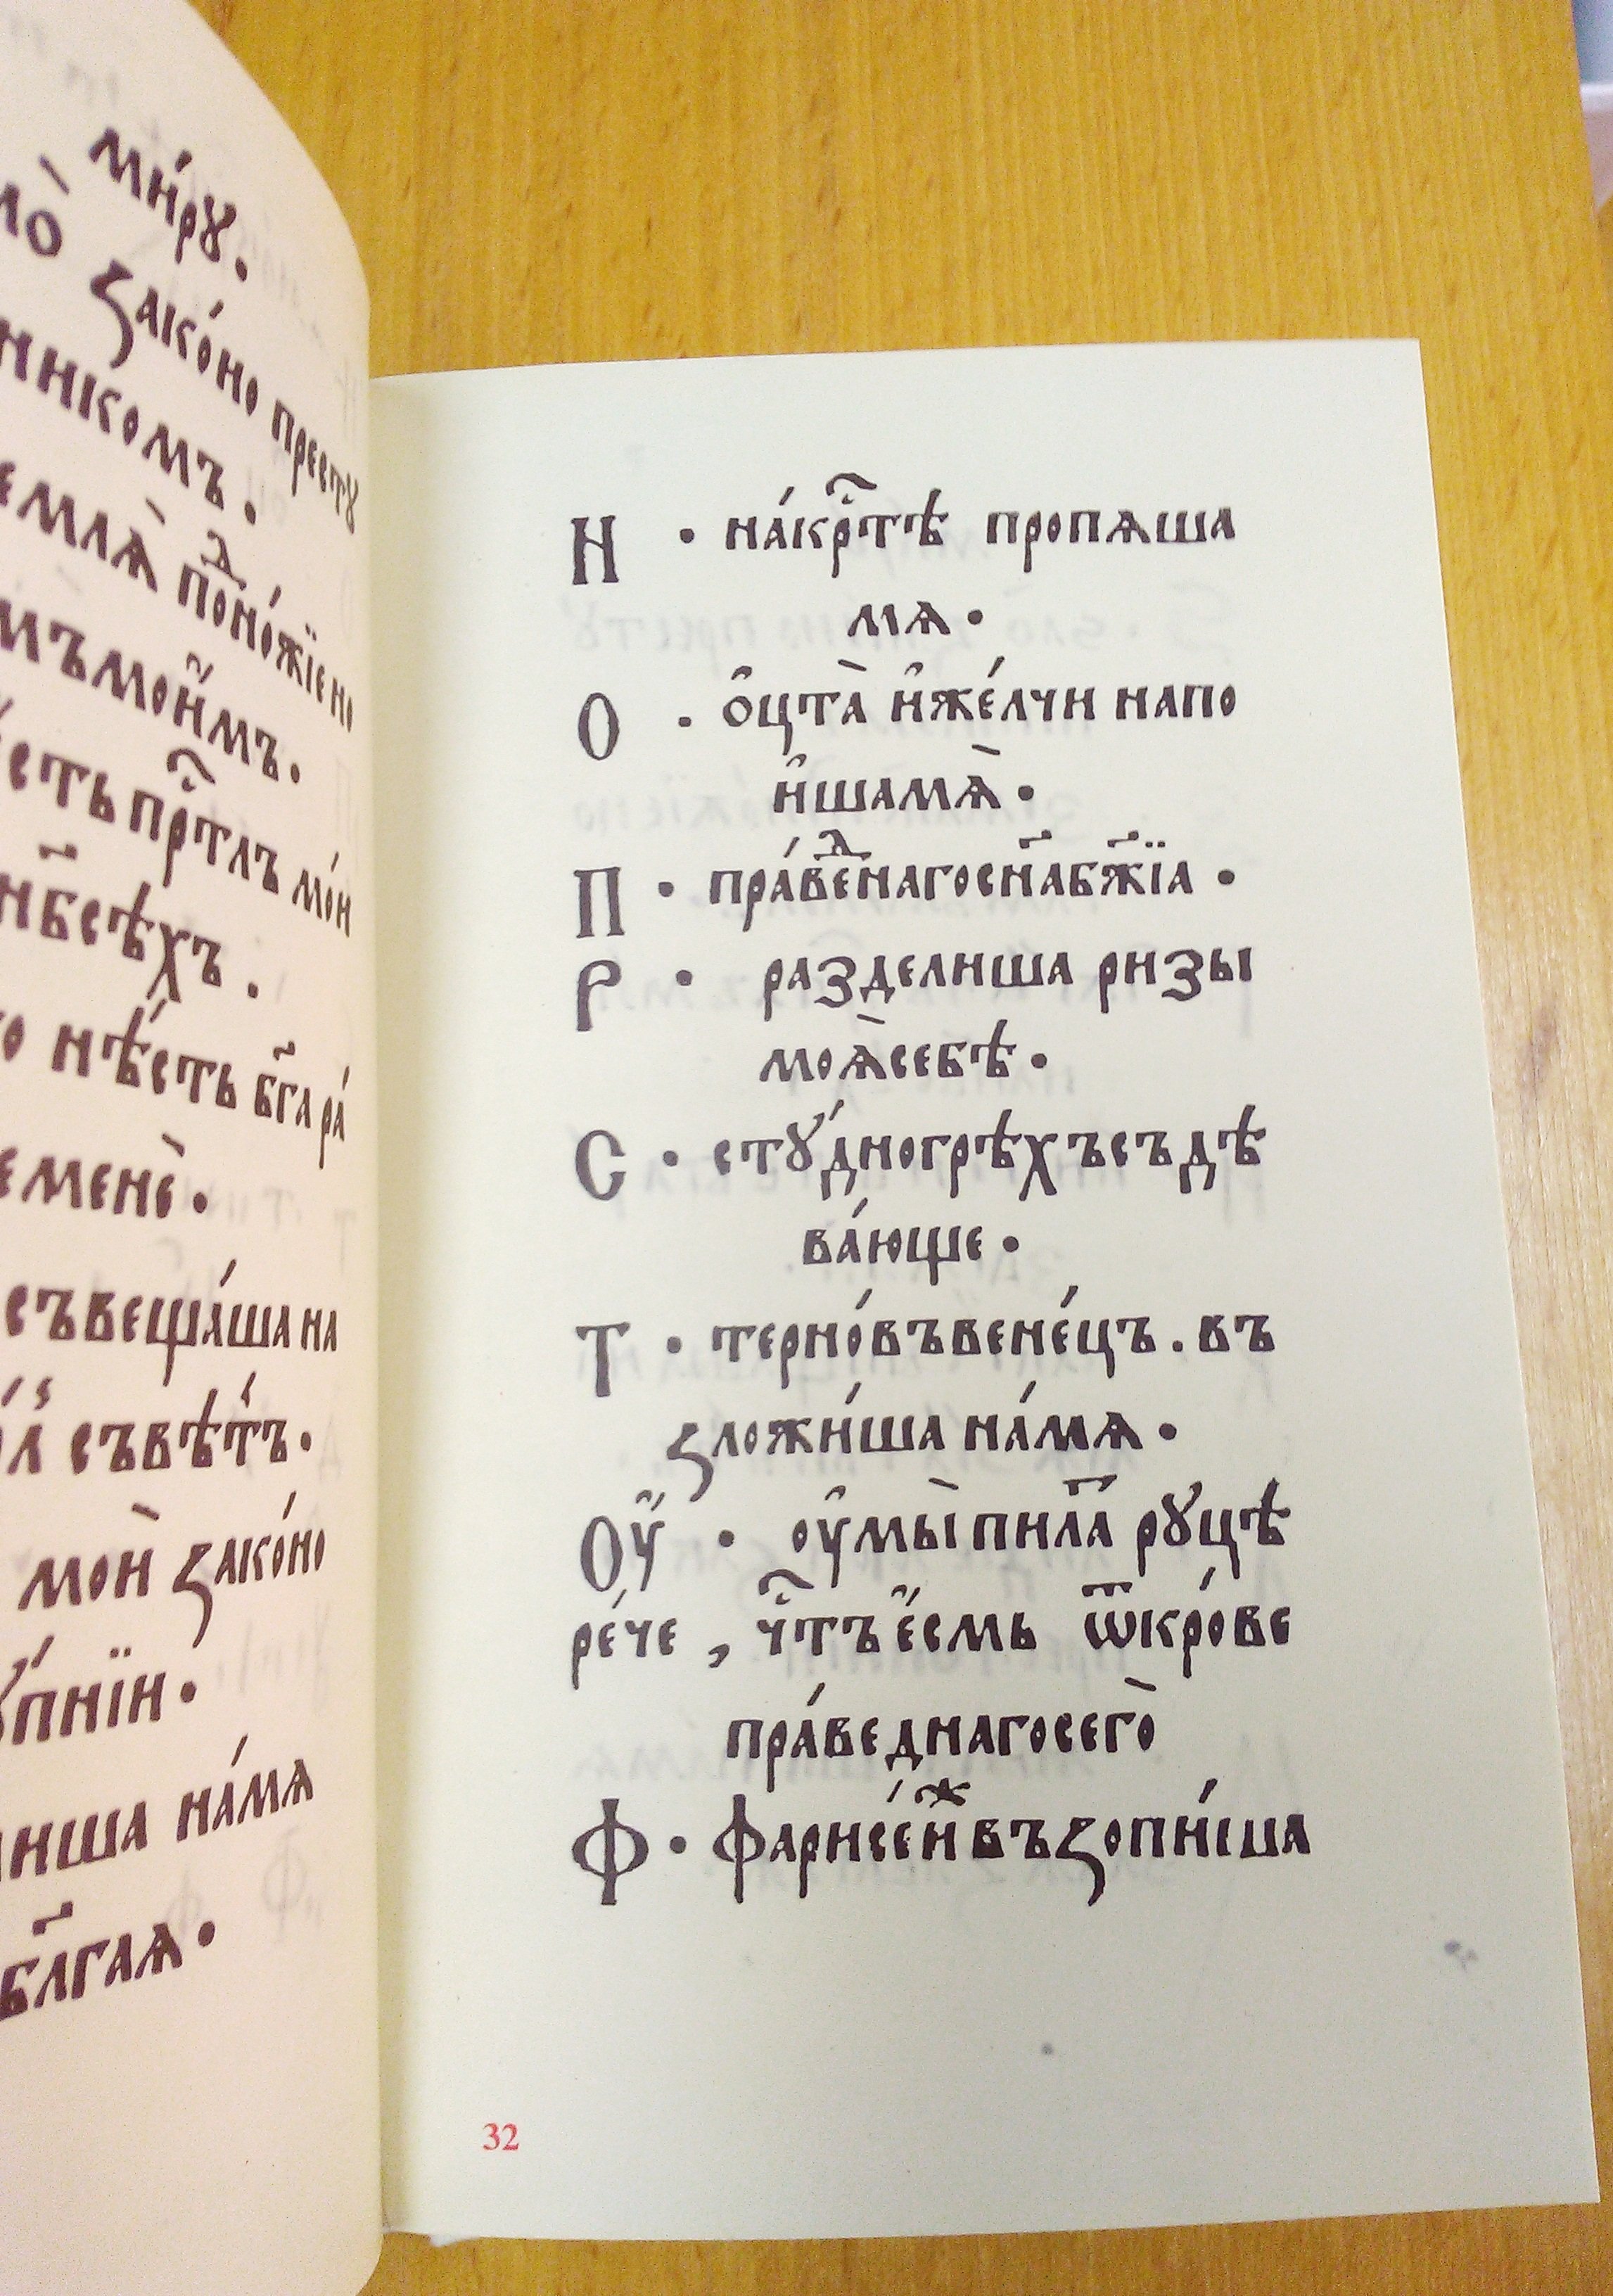 ми́рꙋ .
ло̀ ꙁако́но престꙋ
никомъ .
емлѧ̀ поⷣно́жїе но
мъмои҆́мъ .
есть прⷭ҇тлъ мо́и
нб҃сѣхъ .
о нѣ́сть бг҃а ра́
еменѐ .
съвеща́ша на
л съвѣтъ .
мои̏ ꙁако́но
ꙋ́пнїи .
иша на́мѧ
бл҃гаѧ .
Н . на́крⷭ҇тѣ пропѧша
мѧ .
О . о҆цта̀ и҆же́лчи напо
и҆шамѧ̀ .
П . пра́веⷣнагосн҃абж҃їа .
Р . разделиша ризы
моѧ̀себѣ .
С . стꙋ́дногрѣхъсъдѣ
ва́юще .
Т . терно́въвене́цъ . въ
ꙁложи́ша на́мѧ .
Оу҆ . оу҆мы̀пила҃ рꙋцѣ
ре́че , чⷭ҇тъе҆́смь ѿкро́ве
пра́веднагосего̀
Ф . фарисе́иⷤвъꙁопи́ша
32